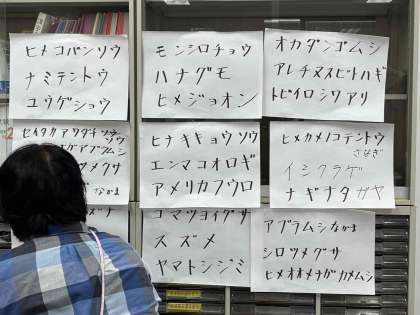 ヒメコバンソウ
ナミテントウ
ユウゲショウ
モンシロチョウ
ハナグモ
ヒメジョオン
オカダンゴムシ
アレチヌスビトハギ
トビイロシワアリ
セイタカアワダチソウ
ヒナキキョウソウ
エンマコオロギ
アメリカフウロ
ヒメカメノコテントウ
さなぎ
イシクラゲ
ナギナタガヤ
なかま
コマツヨイグサ
スズメ
ヤマトシジミ
アブラムシなかま
シロツメグサ
ヒメオオメナガカメムシ